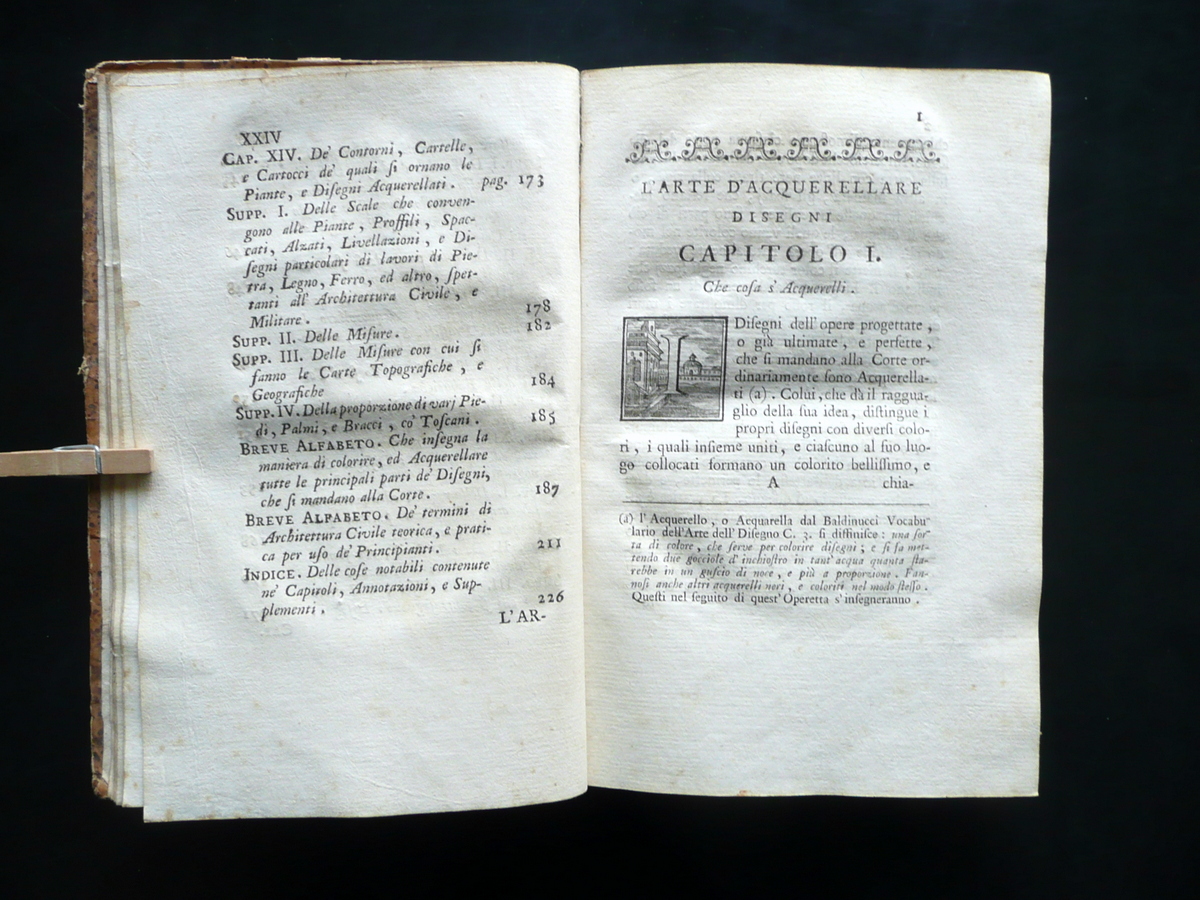 XXIV
CAP. XIV. De' Contorni, Cartelle,
e Cartocci de' quali ſi ornano le
Piante, e Diſegni Acquerellati. pag. 173
SUPP. I. Delle Scale che conven-
gono alle Piante, Proffili, Spac-
cati, Alzati, Livellazioni, e Di-
ſegni particolari di lavori di Pie-
tra, Legno, Ferro, ed altro, ſpet-
tanti all' Architettura Civile, e
Militare. 178
SUPP. II. Delle Miſure. 182
SUPP. III. Delle Miſure con cui ſi
fanno le Carte Topografiche, e
Geografiche 184
SUPP. IV. Della proporzione di varj Pie-
di, Palmi, e Bracci, co' Toſcani. 185
BREVE ALFABETO. Che inſegna la
maniera di colorire, ed Acquerellare
tutte le principali parti de' Diſegni,
che ſi mandano alla Corte. 187
BREVE ALFABETO. De' termini di
Architettura Civile teorica, e prati-
ca per uſo de' Principianti. 211
INDICE. Delle coſe notabili contenute
ne' Capitoli, Annotazioni, e Sup-
plementi. 226
L'AR-
1
L'ARTE D'ACQUERELLARE
DISEGNI
CAPITOLO I.
Che coſa s' Acquerelli.
Diſegni dell' opere progettate,
o già ultimate, e perfette,
che ſi mandano alla Corte or-
dinariamente ſono Acquerella-
ti (a). Colui, che dà il raggua-
glio della ſua idea, diſtingue i
propri diſegni con diverſi colo-
ri, i quali inſieme uniti, e ciaſcuno al ſuo luo-
go collocati formano un colorito belliſſimo, e
A chia-
(a) l' Acquerello, o Acquarella dal Baldinucci Vocabu-
lario dell' Arte dell' Diſegno C. 3. ſi diffiniſce: una ſor-
ta di colore, che ſerve per colorire diſegni; e ſi fa met-
tendo due gocciole d' inchioſtro in tant' acqua quanta ſta-
rebbe in un guſcio di noce, e più a proporzione. Fan-
noſi anche altri acquerelli neri, e coloriti nel modo ſteſſo.
Queſti nel ſeguito di queſt' Operetta s' inſegneranno.